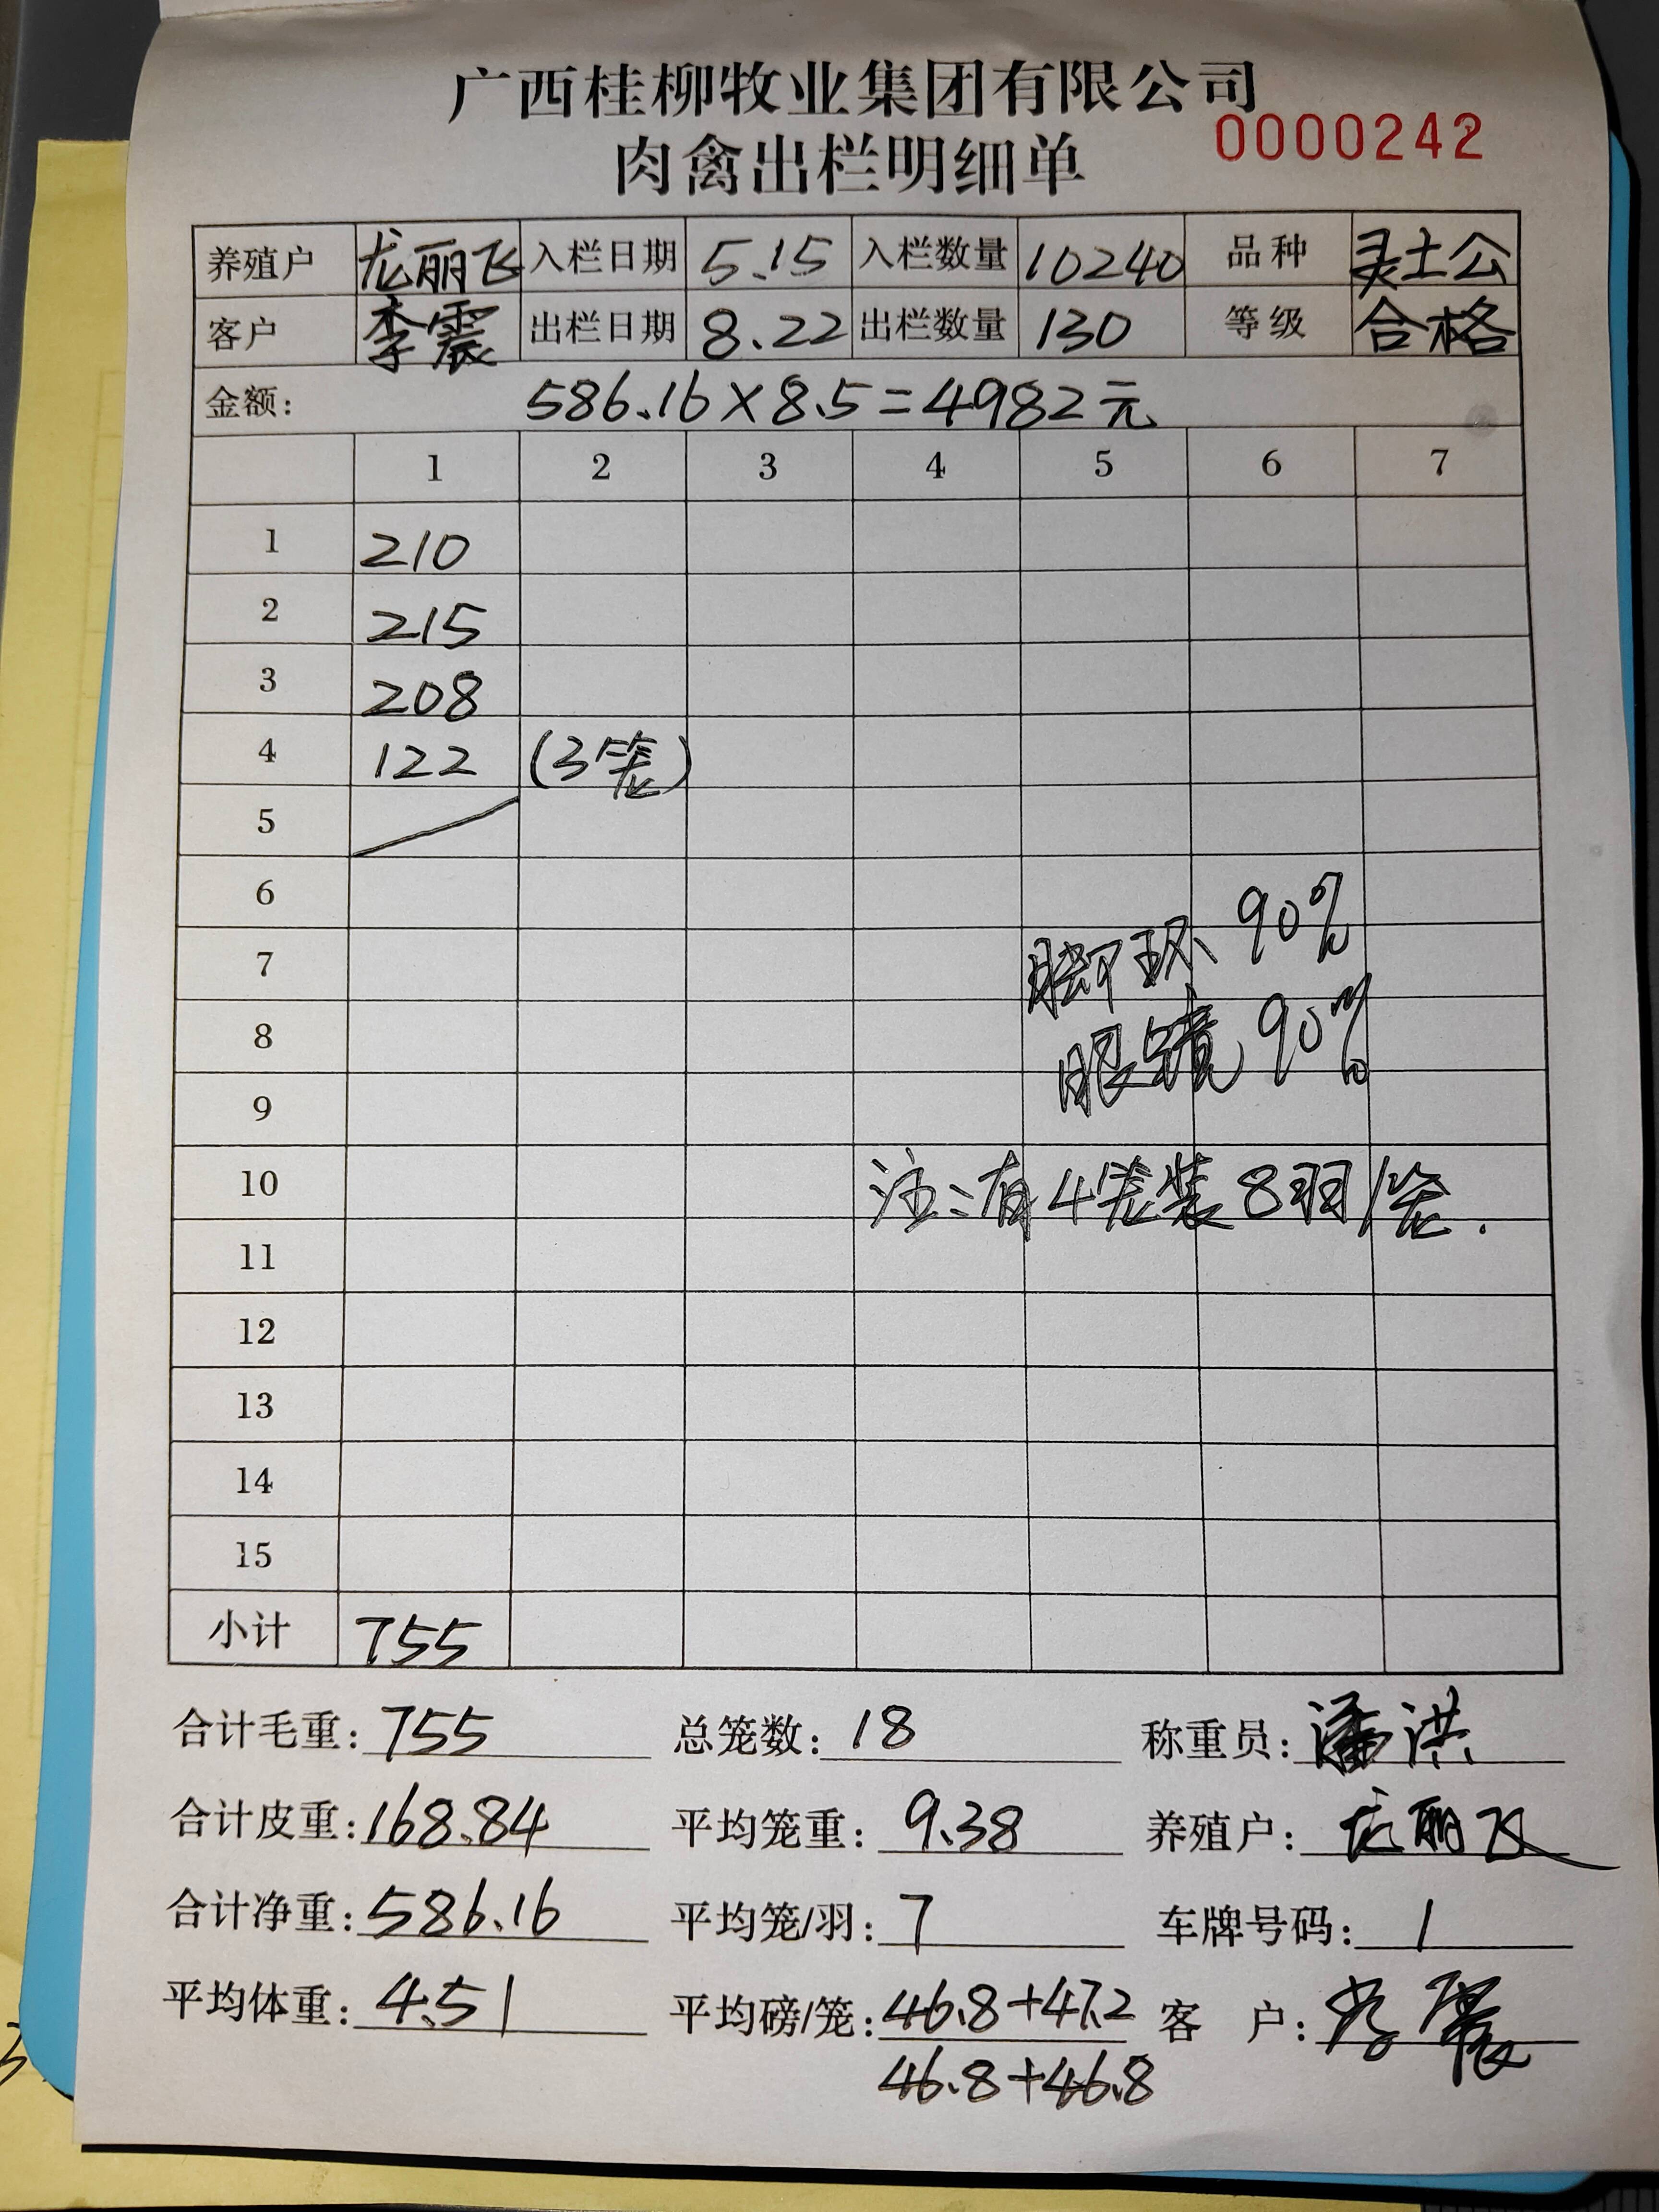 广西桂柳牧业集团有限公司
0000242
肉禽出栏明细单
养殖户 龙丽飞 入栏日期 5.15 入栏数量 10240 品种 灵土公
客户 李震 出栏日期 8.22 出栏数量 130 等级 合格
金额: 586.16×8.5=4982元
1 2 3 4 5 6 7
1 210
2 215
3 208
4 122 (3笼)
5
6
脚环 90%
7
眼镜 90%
8
9
10 注:有4笼装8羽/笼.
11
12
13
14
15
小计 755
合计毛重: 755 总笼数: 18 称重员: 潘洪
合计皮重: 168.84 平均笼重: 9.38 养殖户: 龙丽飞
合计净重: 586.16 平均笼/羽: 7 车牌号码: 1
平均体重: 4.51 平均磅/笼: 46.8+47.2 客 户: 李震
46.8+46.8